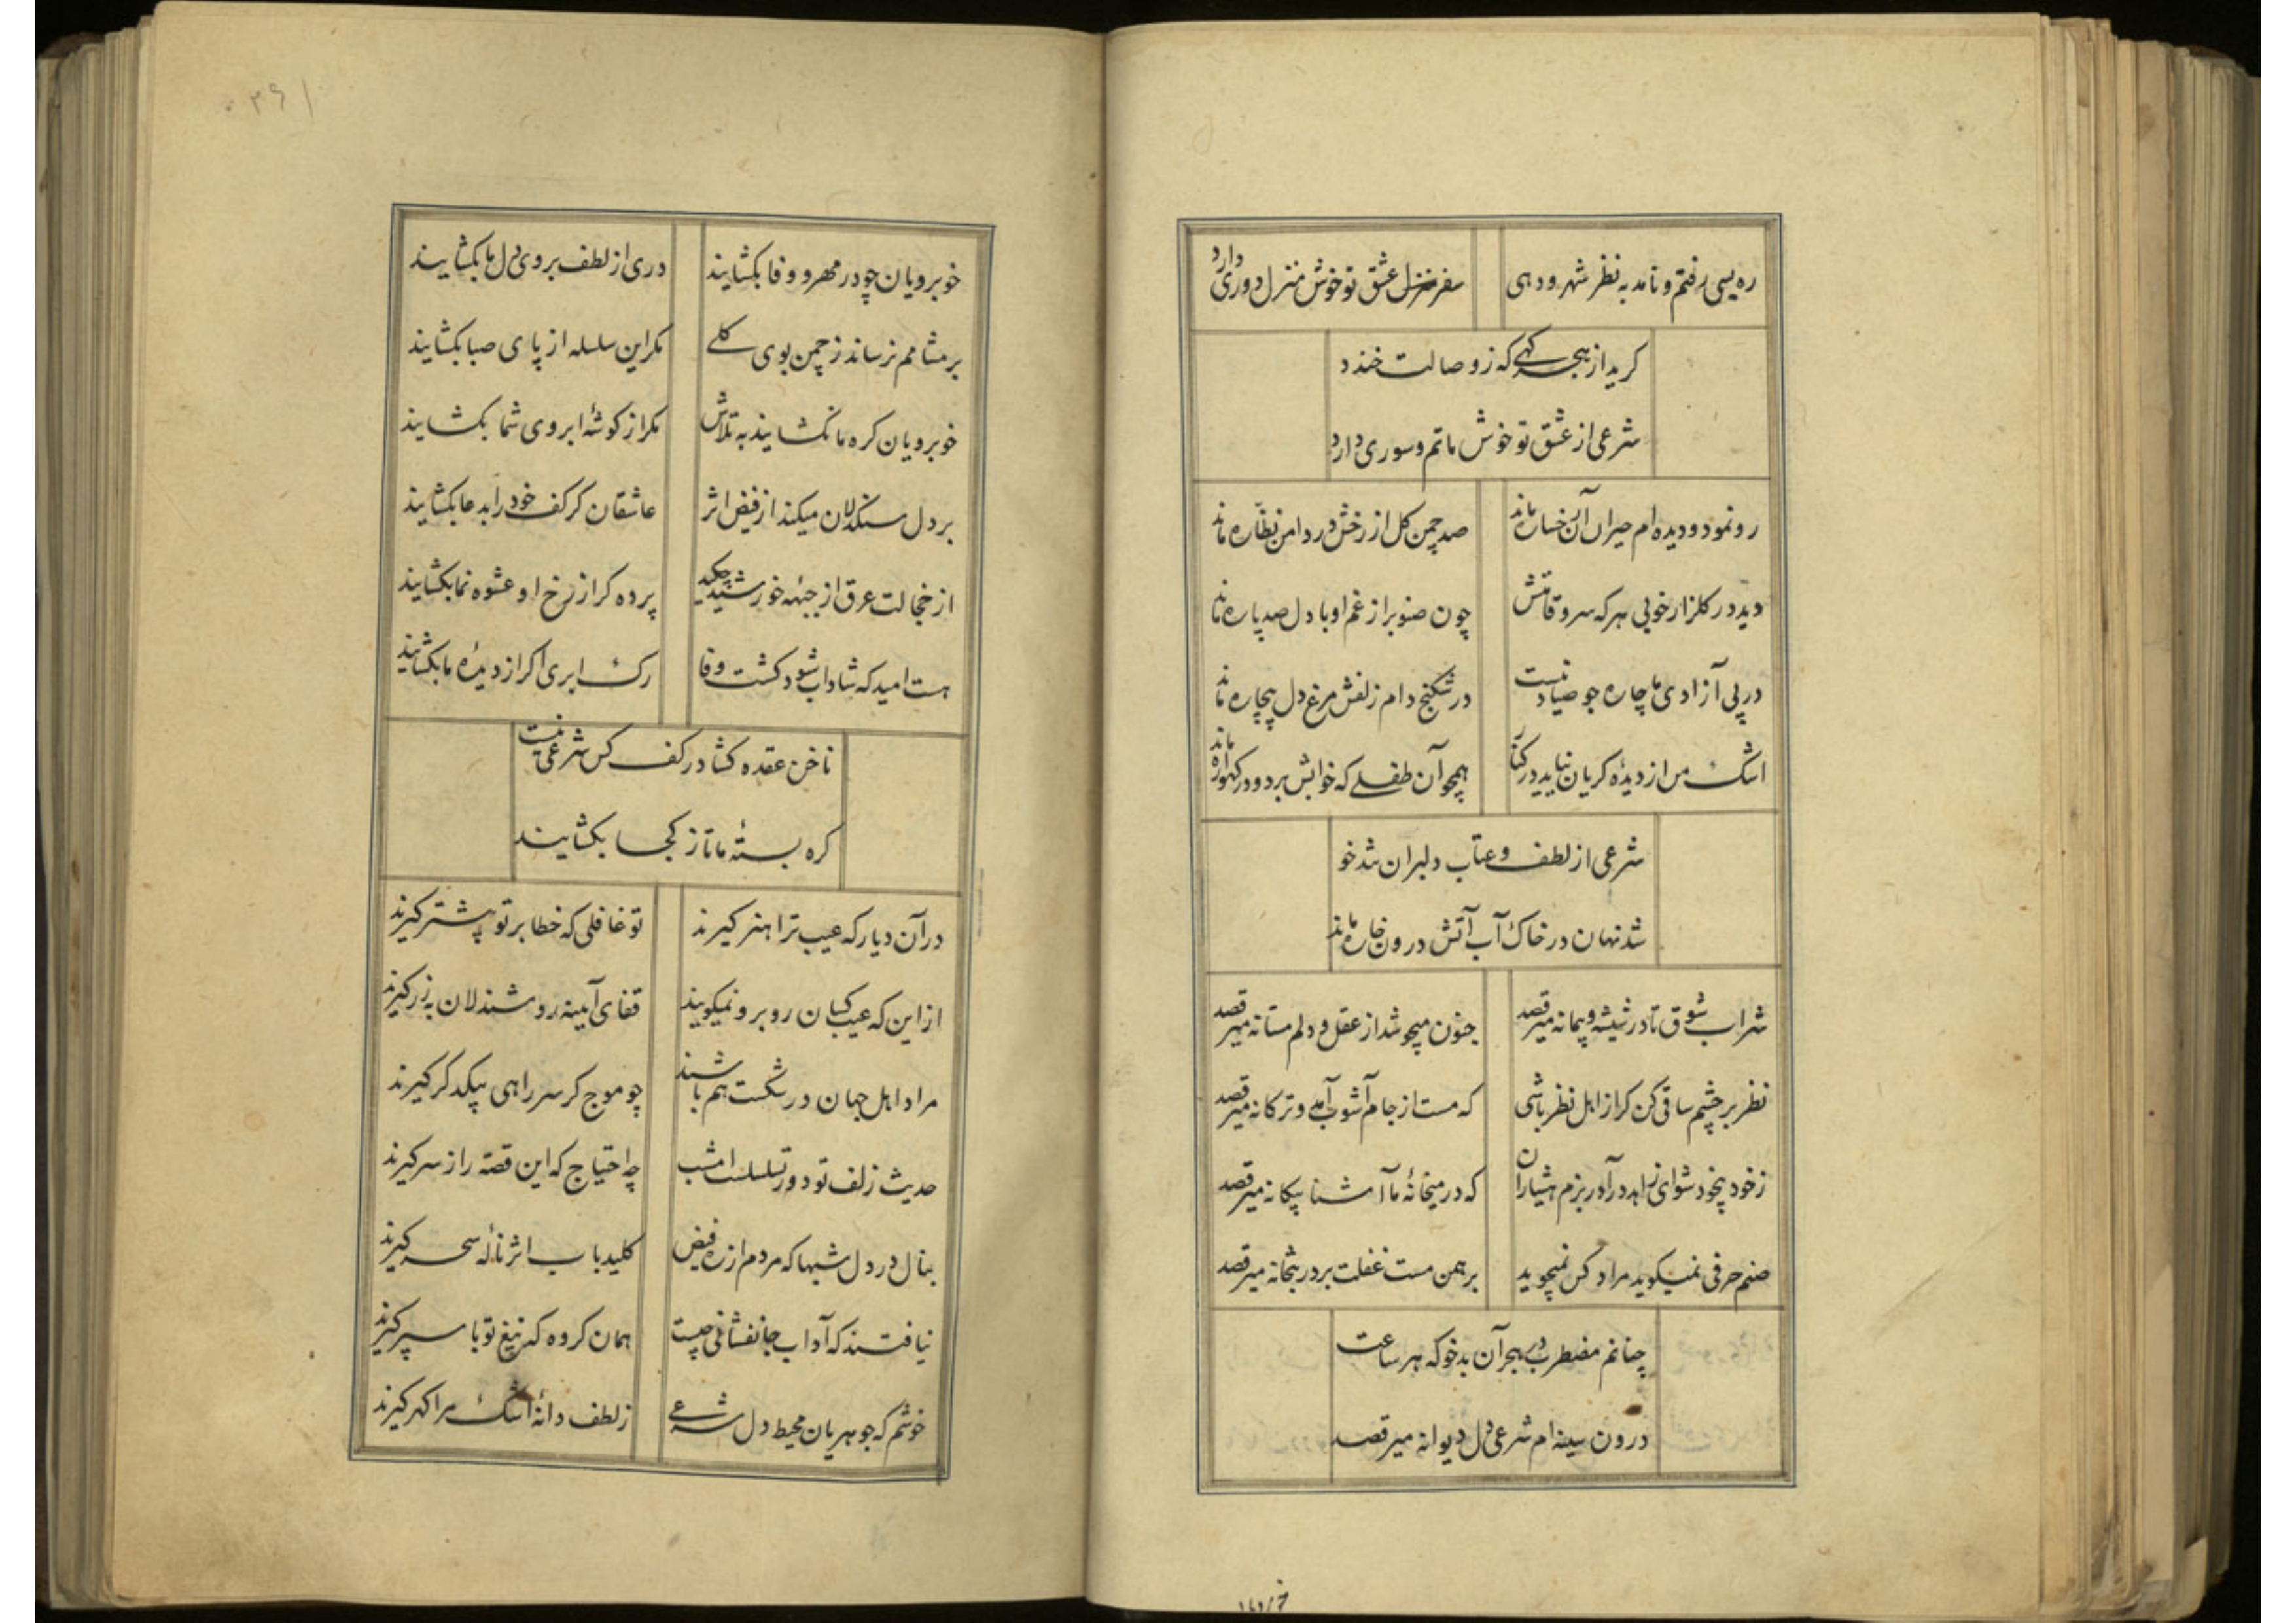 ره بسی رفتم و نامد به نظر شهر و دهی
سفر منزل عشق تو خوش منزل دوری دارد
کرید از هجر کهی که ز وصالت خندد
شرعی از عشق تو خوش ماتم و سوری دارد
رو نمود و دیده ام حیران آن رخساره ماند
صد چمن کل از رخش در دامن نظاره ماند
دید در کلزار خوبی هر که سرو قامتش
چون صنوبر از غم او با دل صد پاره ماند
در پی آزادی ما چاره جو صیاد نیست
در شکنج دام زلفش مرغ دل بیچاره ماند
اشک من از دیدهٔ کریان نیاید در کنار
همچو آن طفلی که خوابش برد و در کهواره ماند
شرعی از لطف و عتاب دلبران شد خو
شد نهان در خاک آب آتش درون خاره ماند
شراب شوق تا در شیشه و پیمانه میرقصد
جنون میجوشد از عقل و دلم مستانه میرقصد
نظر بر چشم ساقی کن کر از اهل نظر باشی
که مست از جام آشوب آمد و ترکانه میرقصد
ز خود بیخود شو ای زاهد در آ در بزم هشیاران
که در میخانهٔ ما آشنا بیکانه میرقصد
صنم حرفی نمیکوید مراد کس نمیجوید
برهمن مست غفلت بر در بتخانه میرقصد
چنانم مضطرب در هجر آن بدخو که هر ساعت
درون سینه ام شرعی دل دیوانه میرقصد
۳۶۱
خوبرویان چو در مهر و وفا بکشایند
دری از لطف بروی دل ما بکشایند
بر مشامم نرساند ز چمن بوی کلی
مکر این سلسله از پای صبا بکشایند
خوبرویان کره ما نکشایند به تلاش
مکر از کوشهٔ ابروی شما بکشایند
بر دل سنکدلان میکند از فیض اثر
عاشقان کر کف خود را بدعا بکشایند
از خجالت عرق از جبههٔ خورشید چکید
پرده کر از رخ او عشوه نما بکشایند
هست امید که شاداب شود کشت وفا
رک ابری اکر از دیدهٔ ما بکشایند
ناخن عقده کشا در کف کس شرعی نیست
کره بستهٔ ما تا ز کجا بکشایند
در آن دیار که عیب ترا هنر کیرند
تو غافلی که خطا بر تو بیشتر کیرند
از این که عیب کسان روبرو نمیکویند
قفای آیینه روشندلان به زر کیرند
مراد اهل جهان در شکست هم باشند
چو موج کر سر راهی بیکدکر کیرند
حدیث زلف تو دور تسلسلست امشب
چه احتیاج که این قصه را ز سر کیرند
بنال در دل شبها که مردم از ره فیض
کلید باب اثر نالهٔ سحر کیرند
نیافتند که آداب جانفشانی چیست
همان کروه که تیغ تو با سپر کیرند
خوشم که جوهریان محیط دل شرعی
ز لطف دانهٔ اشک مرا کهر کیرند